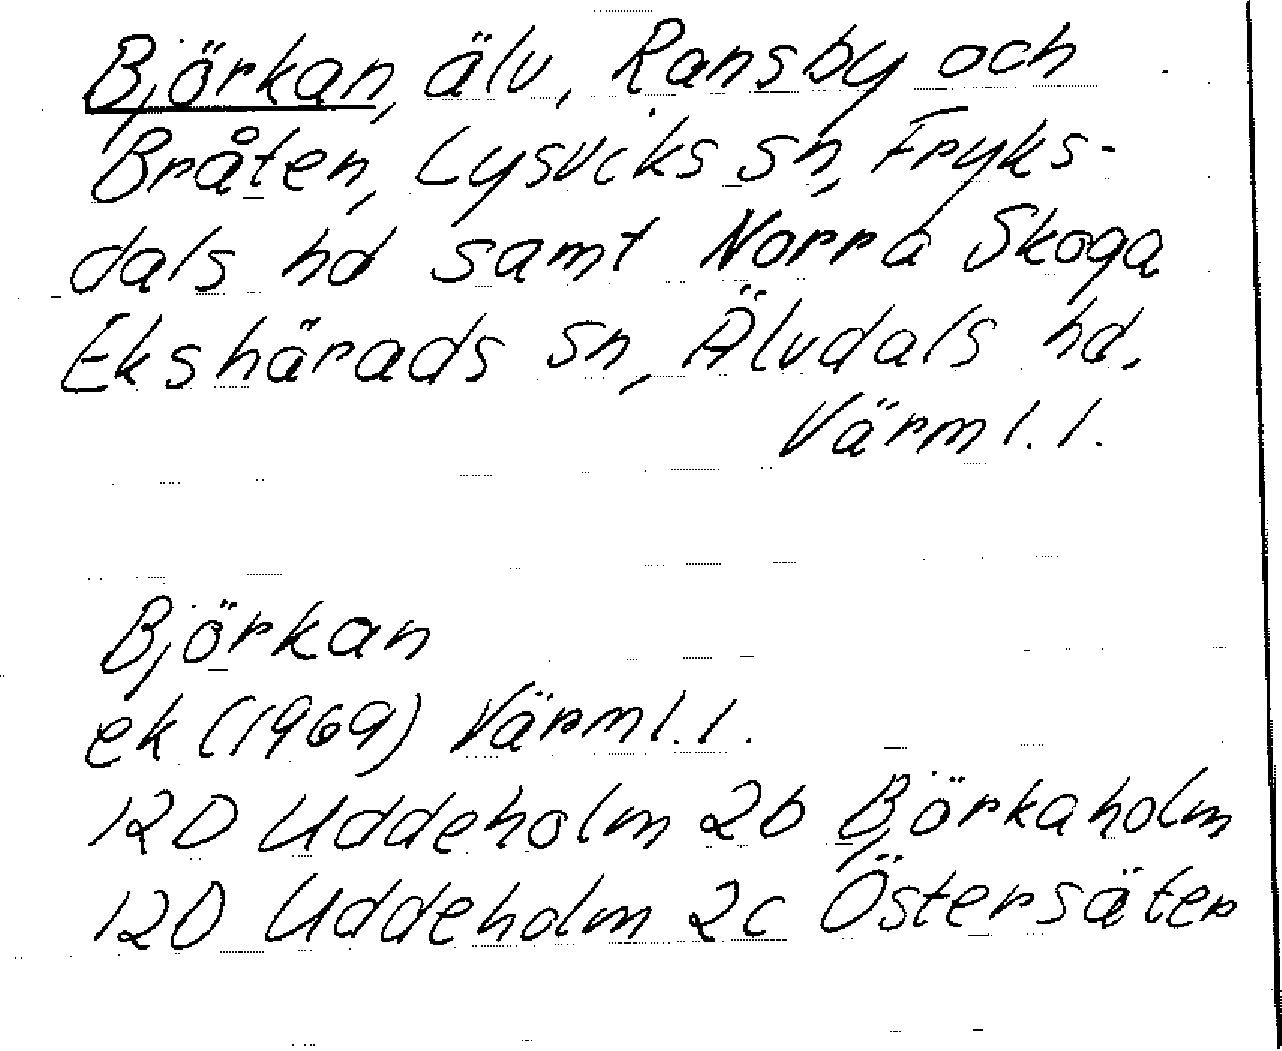 Björkan, älv, Ransby och
Bråten, Lysviks sn, Fryks-
dals hd samt Norra Skoga
Ekshärads sn, Älvdals hd,
Värml. l.
Björkan
ek (1969) Värml. l.
12D Uddeholm 2b Björkaholm
12D Uddeholm 2c Östersäter